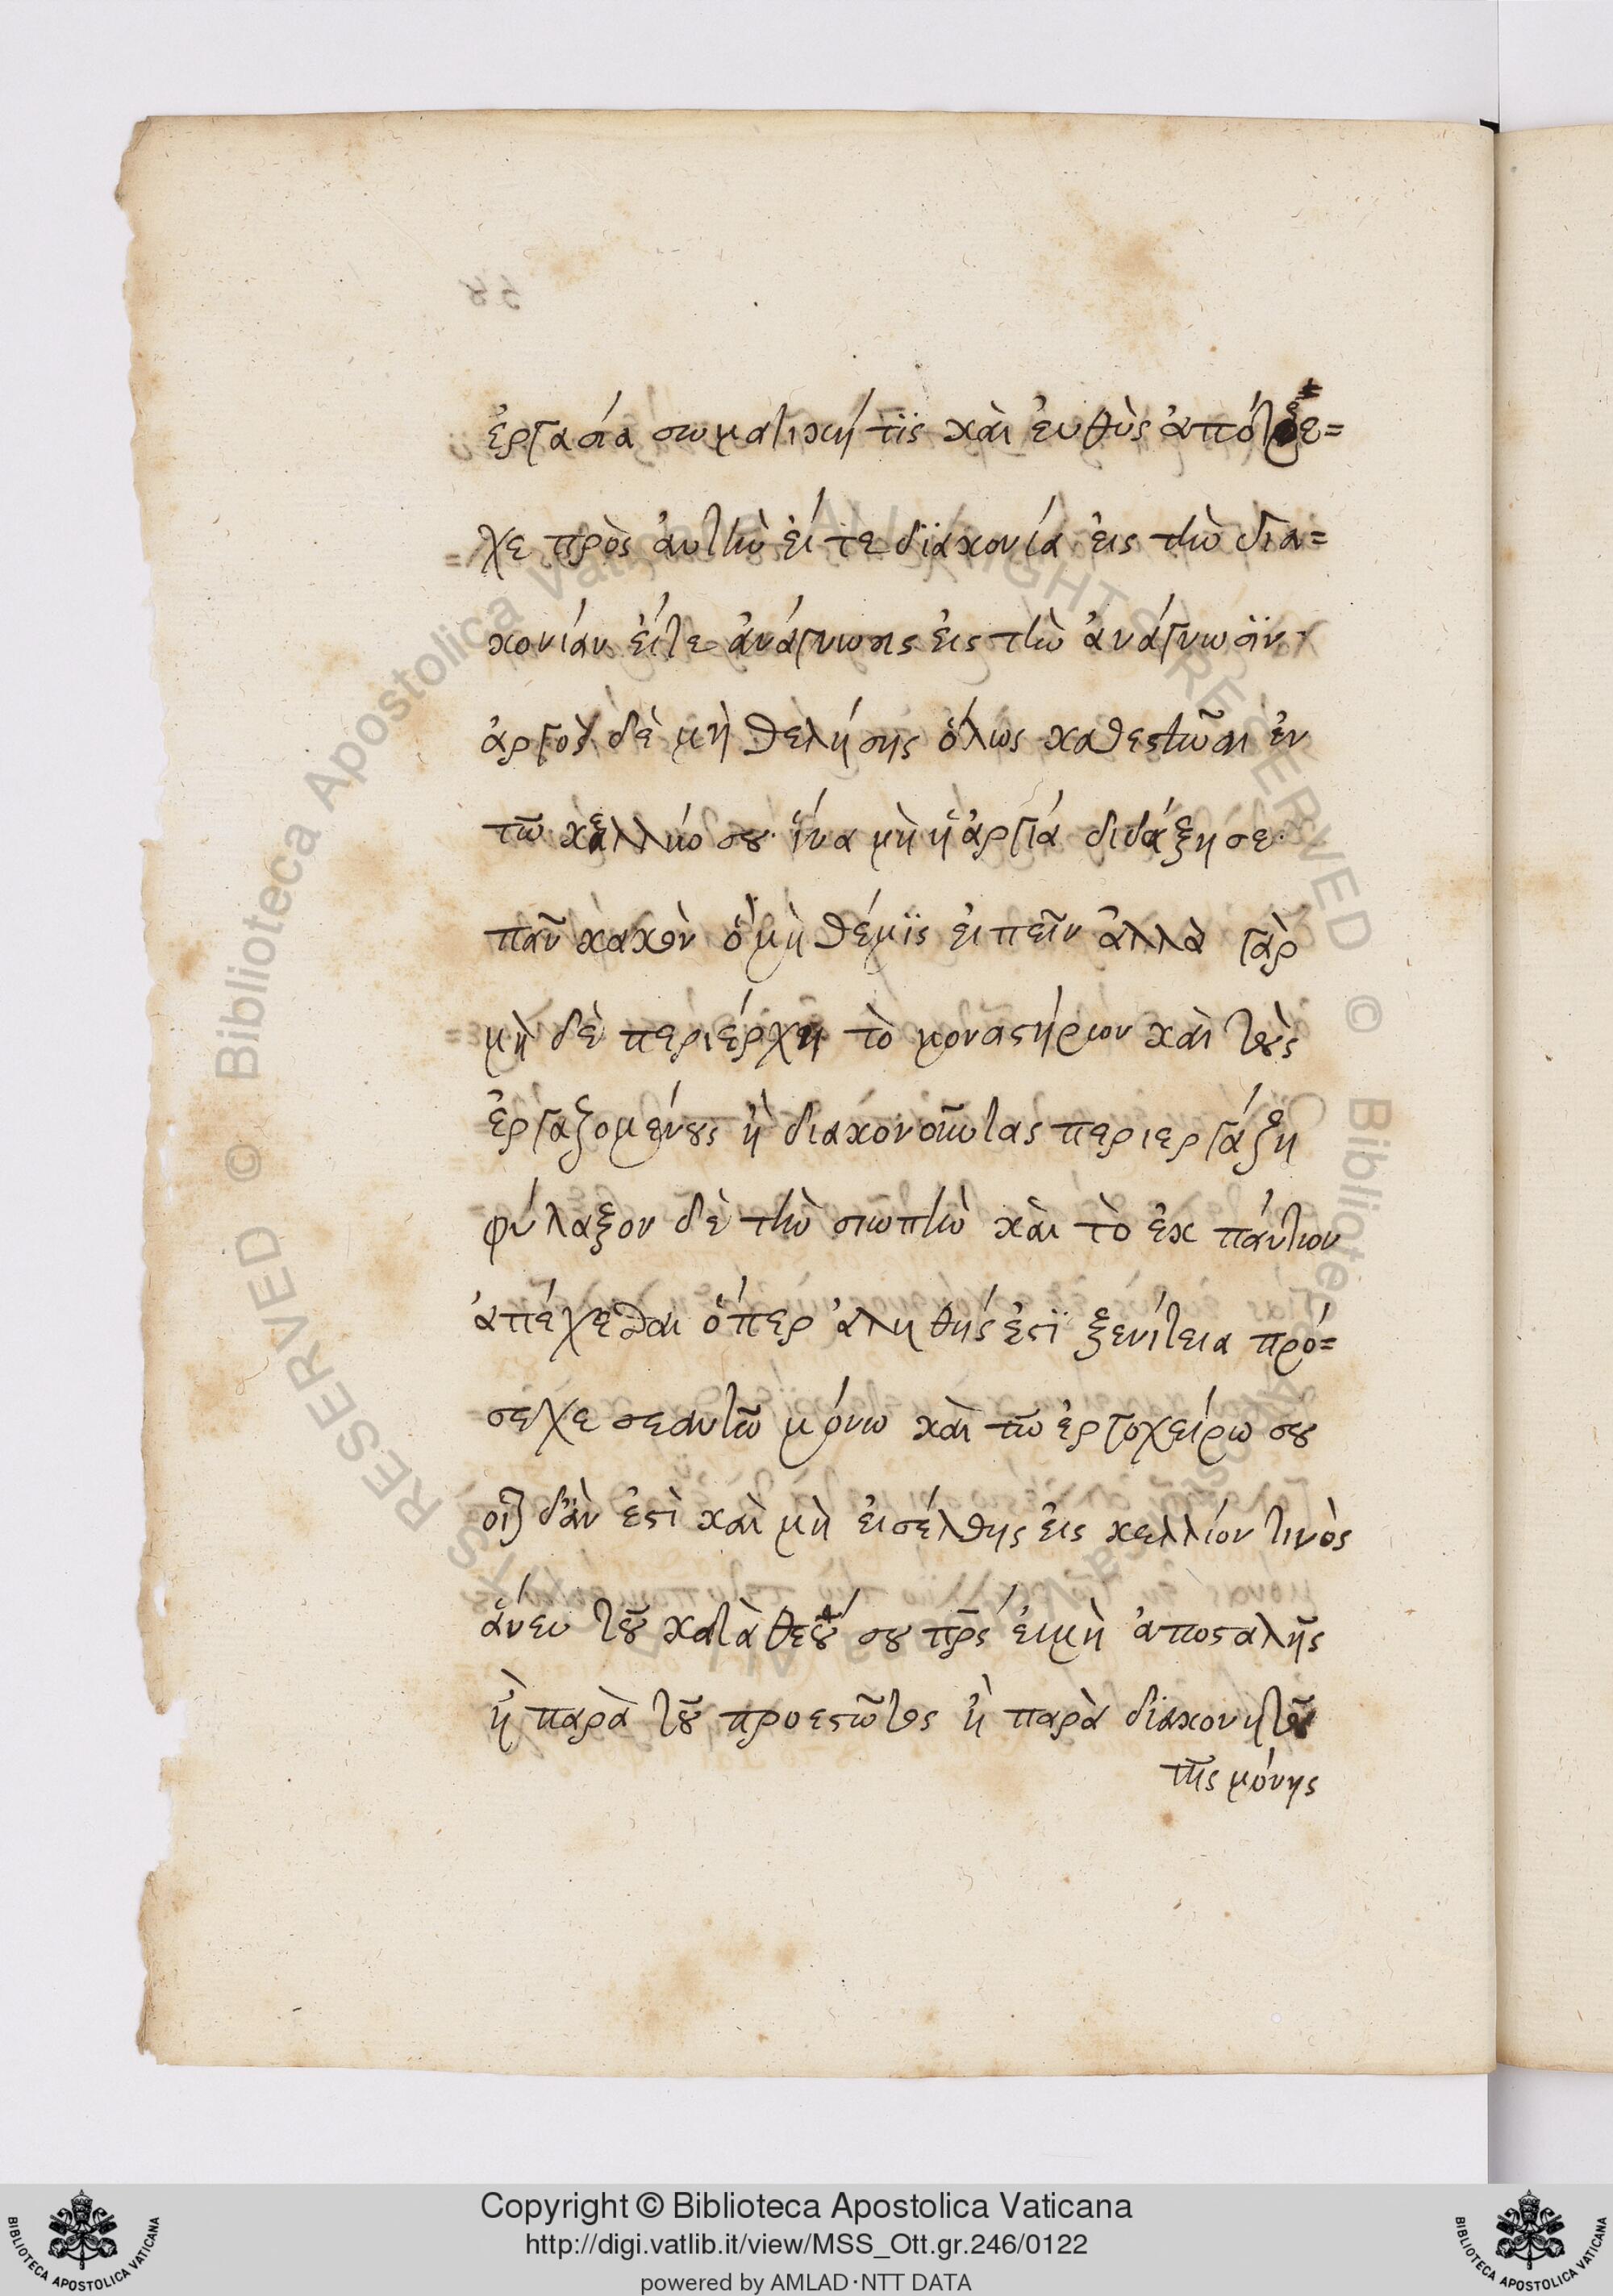 ἐργασία σωματικὴ τϊς καὶ ἐυθὺς ἀπότρε=
χε πρὸς ἀυτὴν ἐίτε δϊακονία ἐις τὴν δια=
κονίαν ἐίτε ἀνάγνωσις ἐις τὴν ἀνάγνωσϊν
ἀργὸς δὲ μὴ θελήσης ὅλως καθεστῶσι ἐν
τῶ κελλίο σου· ἵνα μὴ ἡ ἀργία διδάξη σε·
πᾶν κακὸν ὃ μὴ θέμϊς ἐιπεῖν ἀλλὰ γὰρ
μὴ δὲ περιέρχη τὸ μοναστήριον καὶ τοὺς
ἐργαζομένους ἢ διακονοῦντας περιεργάζη
φύλαξον δὲ τὴν σιωπὴν καὶ τὸ ἐκ πάντων
ἀπέχεσθαι ὅπερ ἀληθής ἐστϊ ξενίτεια πρό=
σεχε σεαυτῶ μόνω καὶ τῶ ἐργοχείρω σου
οἷον δ'ἂν ἐστὶ καὶ μὴ ἐισέλθης ἐις κελλίον τινὸς
ἄνευ τοῦ κατὰ θεόν σου πρς ἐιμὴ ἀποσταλῆς
ἢ παρὰ τοῦ προεστῶτος ἢ παρὰ δϊακονητοῦ
τῆς μόνης
Copyright © Biblioteca Apostolica Vaticana
http://digi.vatlib.it/view/MSS_Ott.gr.246/0122
powered by AMLAD·NTT DATA